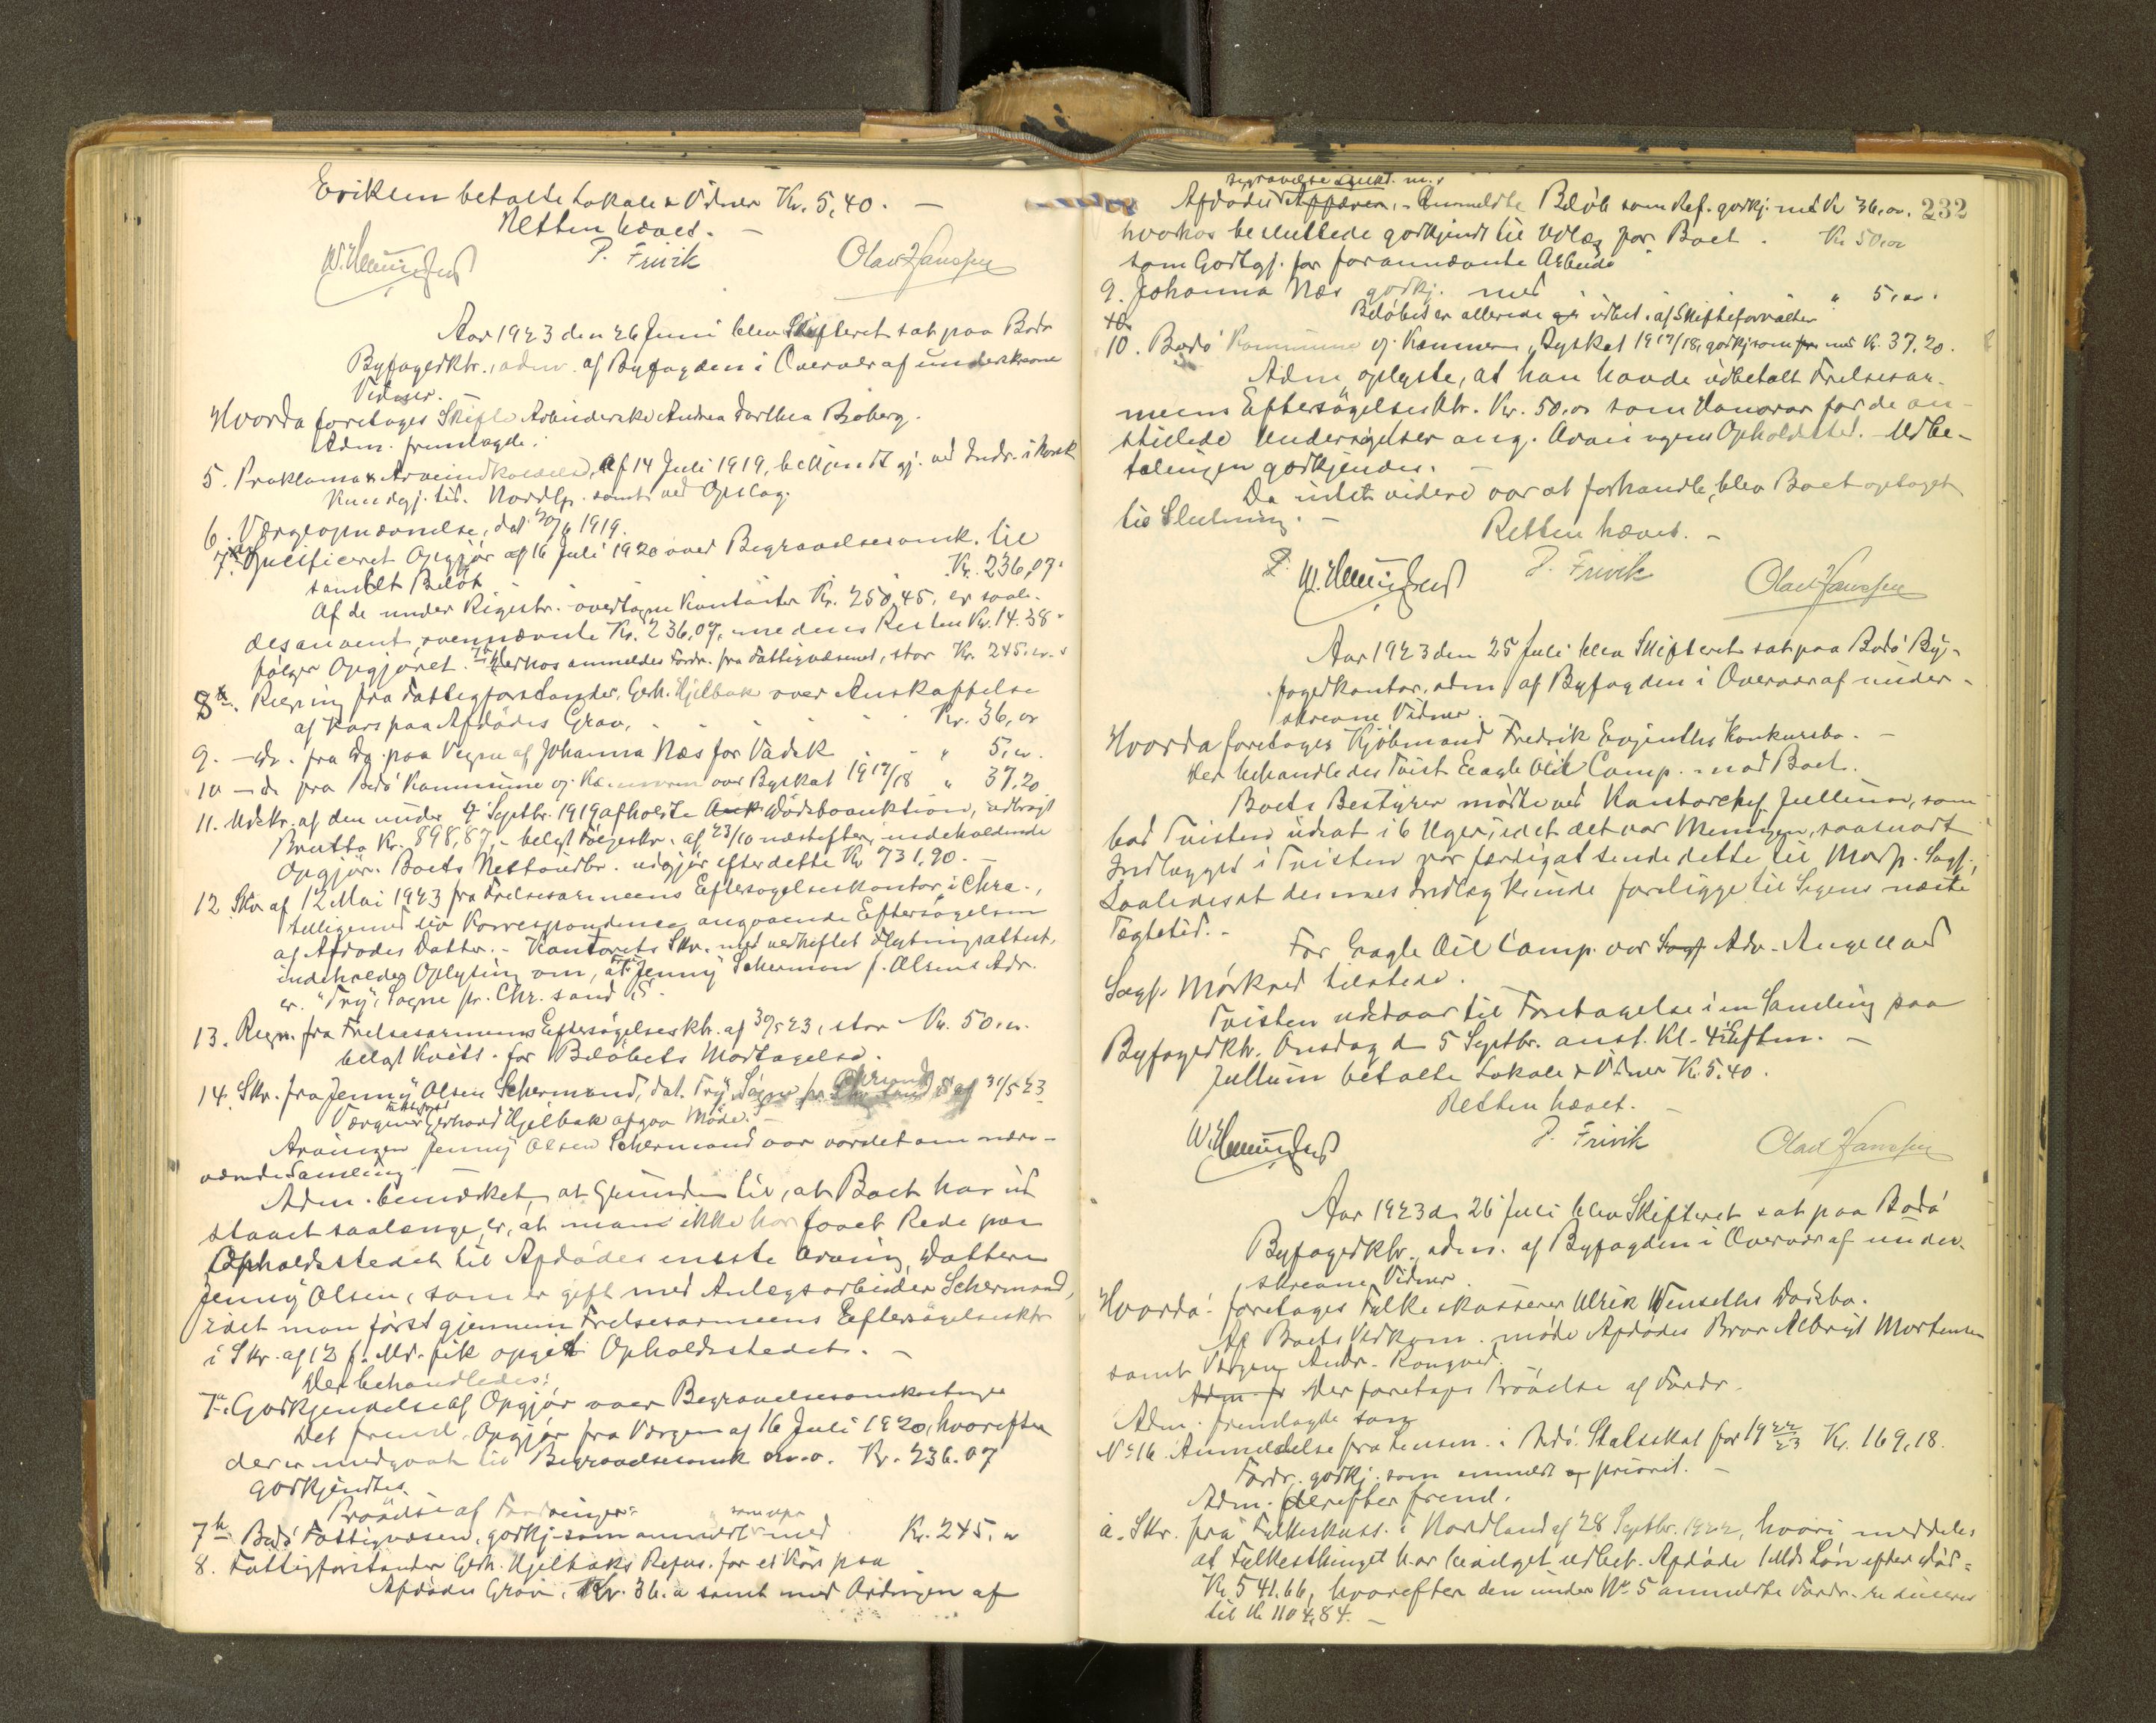 Eriksen betalte Lokale & Vidner Kr. 5,40. —
Retten hævet. —
P. Frivik Olav Hanssen
Aar 1923 den 26 Juni blev Skifteret sat paa Bodø
Byfogedktr., adm. af Byfogden i Overvær af underskrevne
Vidner.
Hvorda foretages Skifte Arbeiderske Andrea Dorthea Boberg.
Adm. fremlagde:
5. Proklama & Arveindkaldelse, af 14 Juli 1919, bekjendtgj. ved Indr. i Norsk
Kundgj. tid. Nordlp. samt ved Opslag.
6. Værgeopnævnelse, dat. 30/6 1919.
7. Specificeret Opgjør af 16 Juli 1920 over Begravelsesomk. til
samlet Beløb Kr. 236,07.
Af de under Registr. overtagne Kontanter Kr. 250,45, er saale-
des anvent ovennævnte Kr. 236,07, medens Resten Kr. 14.38
følger Opgjøret. 7b Herhos anmeldes Fordr. fra Fattigvæsenet, stor Kr. 245.00.
8. Regning fra Fattigforstander Gerh. Hjelbak over Anskaffelse
af Kors paa Afdødes Grav, Kr. 36,00
9. — do. fra do. paa Vegne af Johanna Næs for Vadsk " 5,00.
10 — do fra Bodø Kommune v. Kæmneren over Byskat 1917/18 " 37,20
11. Udskr. af den under 4 Septbr. 1919 afholdte Auk Dødsboauktion, udbragt
Brutto Kr. 898,87, — belagt Følgeskr. af 23/10 næstefter, indeholdende
Opgjør. Boets Nettoudbr. udgjør efter dette Kr 731,90. —
12 Skr af 12 Mai 1923 fra Frelsesarmeens Eftersøgelseskontor i Chra.,
tilligemed div Korrespondence angaaende Eftersøgelsen
af Afdødes Datter. — Kontorets Skr. med vedheftet Flytningsattest,
indeholder Oplysning om, at Fru Jenny Schermon f. Olsens Adr.
er "Try", Søgne pr. Chr. sand S.
13. Regn. fra Frelsesarmeens Eftersøgelseskt. af 30/5 23, stor Kr. 50.00.
belagt Kvitt. for Beløbets Modtagelse.
14. Skr. fra Jenny Olsen Schermand, dat. Try, Søgne pr Chrsand S af 31/5 23
Værgen Gerhard Hjelbak afgav Møde. —
Arvingen Jenny Olsen Schermand var varslet om nær-
værende Samling.
Adm. bemærket, at Grunden til, at Boet har ud
staaet saalænge, er, at man ikke har faaet Rede paa
Opholdsstedet til Afdødes eneste Arving, Datteren
Jenny Olsen, som er gift med Anlegsarbeider Schermand,
idet man først gjennem Frelsesarmeens Eftersøgelsesktr
i Skr. af 12 f. Md. fik opgit Opholdsstedet. —
Der behandledes:
7a. Godkjendelse af Opgjør over Begravelsesomkostninger
Det freml. Opgjør fra Værgen af 16 Juli 1920, hvorefter
der er medgaat til Begravelsesomk m. v. Kr. 236.07
godkjendtes.
Prøvelse af Fordringer:
7b Bodø Fattigvæsen, godkj. som anmeldt med Kr. 245.00
8. Fattigforstander Gerh. Hjelbaks Refus. for et Kors paa
Afdødes Grav, Kr. 36.00 samt med Ordningen af
232
Afdødes Affærer, — Anmeldte Beløb som Ref. godkj. med Kr 36,00.
hvorhos besluttede godkjendt til Udlæg for Boet. Kr. 50,00
som Godtgj. for forannævnte Arbeide
9. Johanna Næs godkj. med " 5,00.
Beløbet er allerede udbet. af Skifteforvalter
10. Bodø Kommune v. Kæmneren, Byskat 1917/18, godkj. som med Kr. 37,20.
Adm. oplyste, at han havde udbetalt Frelsesar-
meens Eftersøgelsesktr. Kr. 50.00 som Honorar for de an-
stillede Undersøgelser ang. Arvingens Opholdssted. Udbe-
talingen godkjendes. —
Da intet videre var at forhandle, blev Boet optaget
til Slutning. —
Retten hævet. —
P. Frivik Olav Hanssen
Aar 1923 den 25 Juli blev Skifteret sat paa Bodø By-
fogedkontor, adm. af Byfogden i Overvær af under-
skrevne Vidner.
Hvorda foretages Kjøbmand Fredrik Evjenths Konkursbo. —
Der behandledes Tvist Eagle Oil Comp. mod Boet.
Boets Bestyrer mødte ved Kontorchef Jullum, som
bad Tvisten udsat i 6 Uger, idet det var Meningen, saasnart
Indlægget i Tvisten var færdig at sende dette til Modp. Sagf.,
saaledes at dennes Indlæg kunde foreligge til Sagens næste
Tægtetid. —
For Eagle Oil Comp. var Sagf Adv. Angell ved
Sagf. Mørkved tilstede.
Tvisten udstaar til Foretagelse i en Samling paa
Byfogedktr. Onsdag d 5 Septbr. anst. Kl. 4 Eftm. —
Jullum betalte Lokale & Vidner Kr. 5.40.
Retten hævet. —
P. Frivik Olav Hanssen
Aar 1923 d. 26 Juli blev Skifteret sat paa Bodø
Byfogedktr., adm. af Byfogden i Overvær af under-
skrevne Vidner.
Hvorda: foretages Fylkeskasserer Ulrik Wenseths Dødsbo.
Af Boets Vedkom. møde Afdødes Bror Albrigt Mortensen
samt Værgen Andr. Rongved.
Adm. fr Der foretages Prøvelse af Fordr.
Adm. fremlagde som
No 16. Anmeldelse fra Lensm. i Bodø. Statsskat for 1922/23 Kr. 169,18.
Fordr. godkj. som anmeldt og priorit. —
Adm. derefter freml.
a. Skr. fra Fylkeskass. i Nordland af 28 Septbr. 1922, hvori meddeles
at Fylkesthinget har bevilget udbet. Afdøde 1 Mds Løn efter Død =
Kr 541.66, hvorefter den under No 5 anmeldte Fordr. reduceres
til Kr 1104,84. —